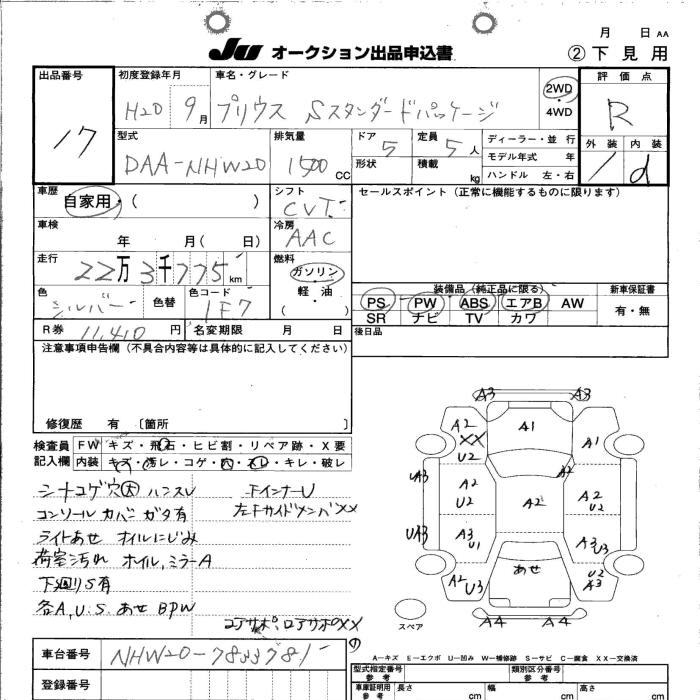 月 日 AA
JU オークション出品申込書 ②下見用
出品番号 初度登録年月 車名・グレード 評価点
17 H20 9月 プリウス Sスタンダードパッケージ 2WD・4WD R
型式 排気量 ドア 定員 ディーラー・並行 外装 内装
DAA-NHW20 1500cc 5 5人 モデル年式 年 / d
形状 積載 kg ハンドル 左・右
車歴 シフト セールスポイント(正常に機能するものに限ります)
自家用・( ) CVT
車検 冷房
年 月( 日) AAC
走行 燃料
22万3千775km ガソリン・軽油・( )
色 色替 色コード 装備品(純正品に限る) 新車保証書
シルバー 1E7 PS PW ABS エアB AW 有・無
SR ナビ TV カワ
R券 11,410円 名変期限 月 日 後日品
注意事項申告欄(不具合内容等は具体的に記入してください)
修復歴 有 〔箇所 〕
検査員記入欄 FW キズ・飛石・ヒビ割・リペア跡・X要
内装 キズ・汚レ・コゲ・穴・スレ・キレ・破レ
シートコゲ穴大 ハンスレ FインナーU
コンソールカバーガタ有 左FサイドメンバXX
ライトあせ オイルにじみ
荷室汚れ ホイル,ミラーA
下廻りS有
各A,U,S.あせ BPW
コアサポ,ロアサポのXX
の
A3 A3
A2 XX U2 A1 A1
A2
UA3 A2 U2 A2 A2 U2
UA3 A3 U1 A3 U3
A2 U3 あせ U2 A3
スペア A4 A4
A-キズ E-エクボ U-凹み W-補修跡 S-サビ C-腐食 XX-交換済
車台番号 型式指定番号 類別区分番号
参考 参考
登録番号 車庫証明用 参考 長さ cm 幅 cm 高さ cm